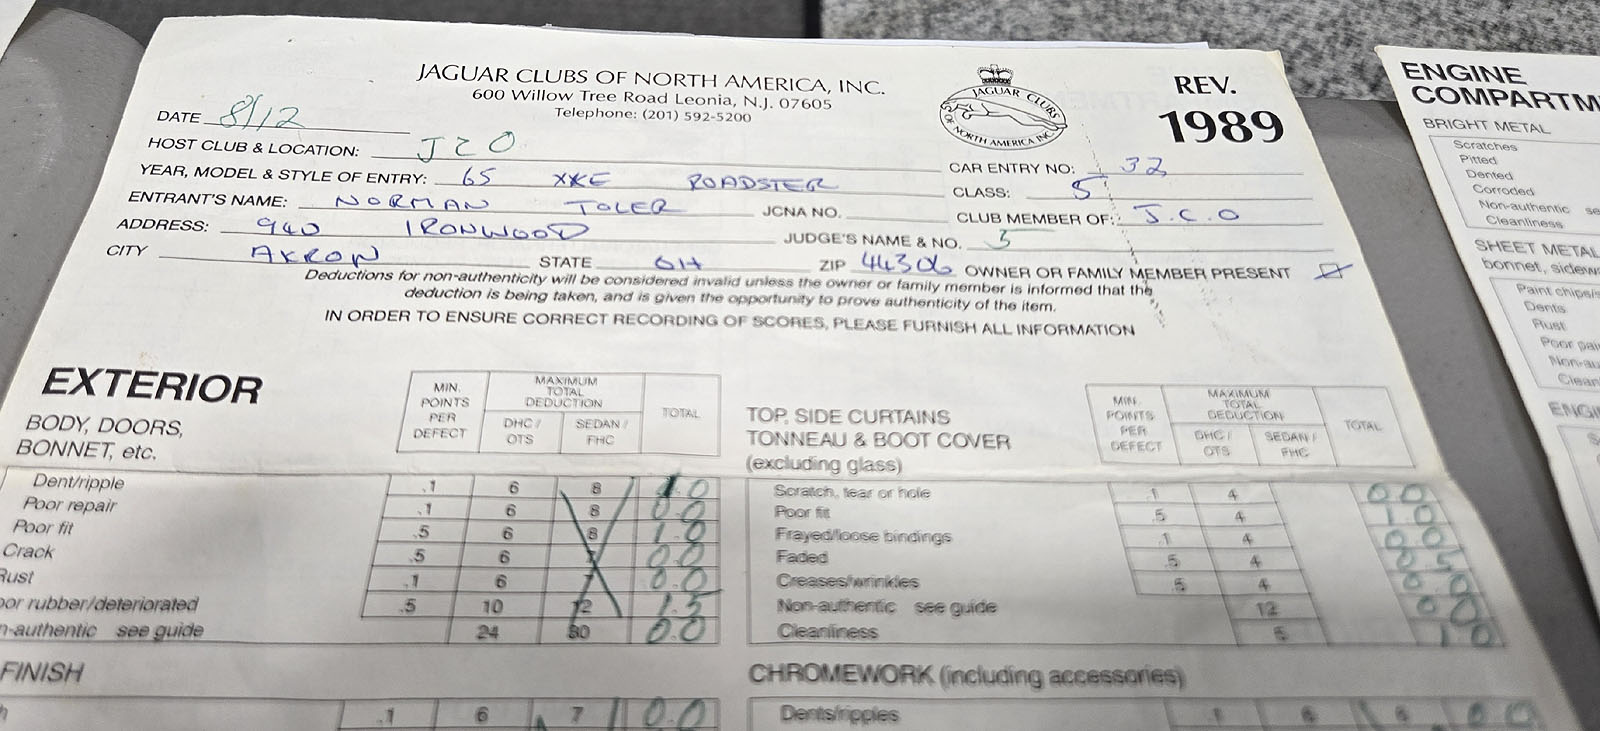 JAGUAR CLUBS OF NORTH AMERICA, INC.
600 Willow Tree Road Leonia, N.J. 07605
Telephone: (201) 592-5200
JAGUAR CLUBS
OF NORTH AMERICA INC.
REV.
1989
DATE 8/12
HOST CLUB & LOCATION: JCO
YEAR, MODEL & STYLE OF ENTRY: 65 XKE ROADSTER
CAR ENTRY NO: 32
CLASS: 5
ENTRANT'S NAME: NORMAN TOLER JCNA NO.
CLUB MEMBER OF: J.C.O
ADDRESS: 940 IRONWOOD
JUDGE'S NAME & NO. 5
CITY AKRON STATE OH ZIP 44306 OWNER OR FAMILY MEMBER PRESENT
Deductions for non-authenticity will be considered invalid unless the owner or family member is informed that the
deduction is being taken, and is given the opportunity to prove authenticity of the item.
IN ORDER TO ENSURE CORRECT RECORDING OF SCORES, PLEASE FURNISH ALL INFORMATION
EXTERIOR
BODY, DOORS,
BONNET, etc.
MIN. POINTS PER DEFECT
MAXIMUM TOTAL DEDUCTION
DHC / OTS
SEDAN / FHC
TOTAL
Dent/ripple .1 6 8 1.0
Poor repair .1 6 8 0.0
Poor fit .5 6 8 1.0
Crack .5 6 7 0.0
Rust .1 6 7 0.0
or rubber/deteriorated .5 10 12 1.5
n-authentic see guide 24 30 0.0
FINISH
h .1 6 7 0.0
TOP, SIDE CURTAINS
TONNEAU & BOOT COVER
(excluding glass)
MIN. POINTS PER DEFECT
MAXIMUM TOTAL DEDUCTION
DHC / OTS
SEDAN / FHC
TOTAL
Scratch, tear or hole .1 4 0.0
Poor fit .5 4 1.0
Frayed/loose bindings .1 4 0.0
Faded .5 4 0.5
Creases/wrinkles .5 4 0.0
Non-authentic see guide 12 0.0
Cleanliness 5 1.0
CHROMEWORK (including accessories)
Dents/ripples .1 6 6 0.0
ENGINE
COMPARTM
BRIGHT METAL
Scratches
Pitted
Dented
Corroded
Non-authentic se
Cleanliness
SHEET METAL
bonnet, sidew
Paint chips/s
Dents
Rust
Poor pai
Non-au
Clean
ENGI